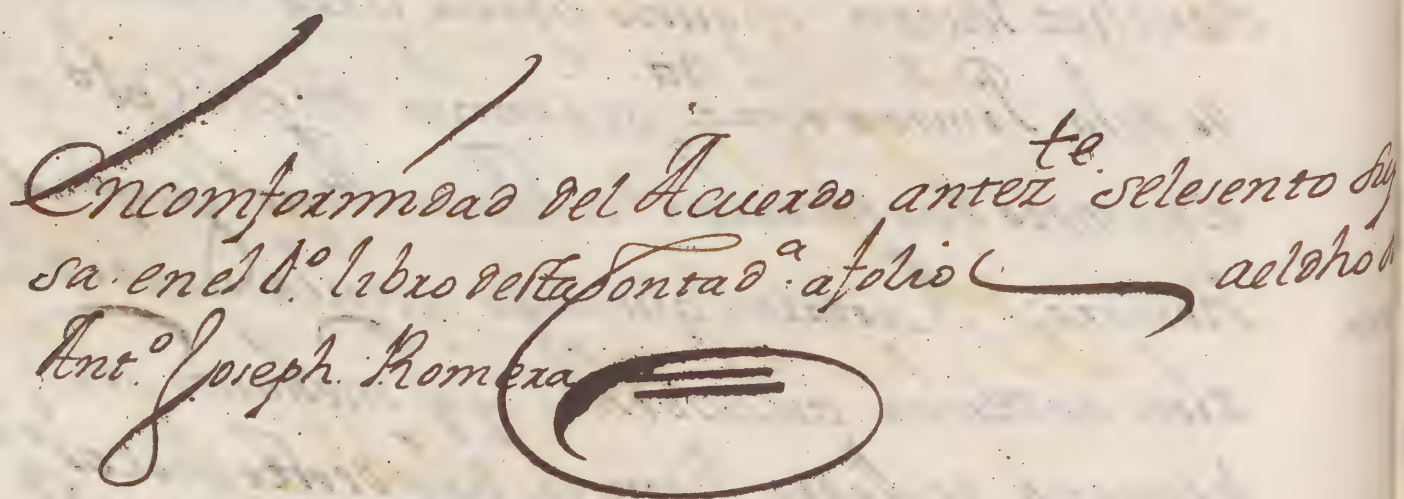 Encomformidad del Acuerdo antez.te selesento
sa en el d.º libro desta Contad.ª afolio aeldho
Ant.º Joseph Romera